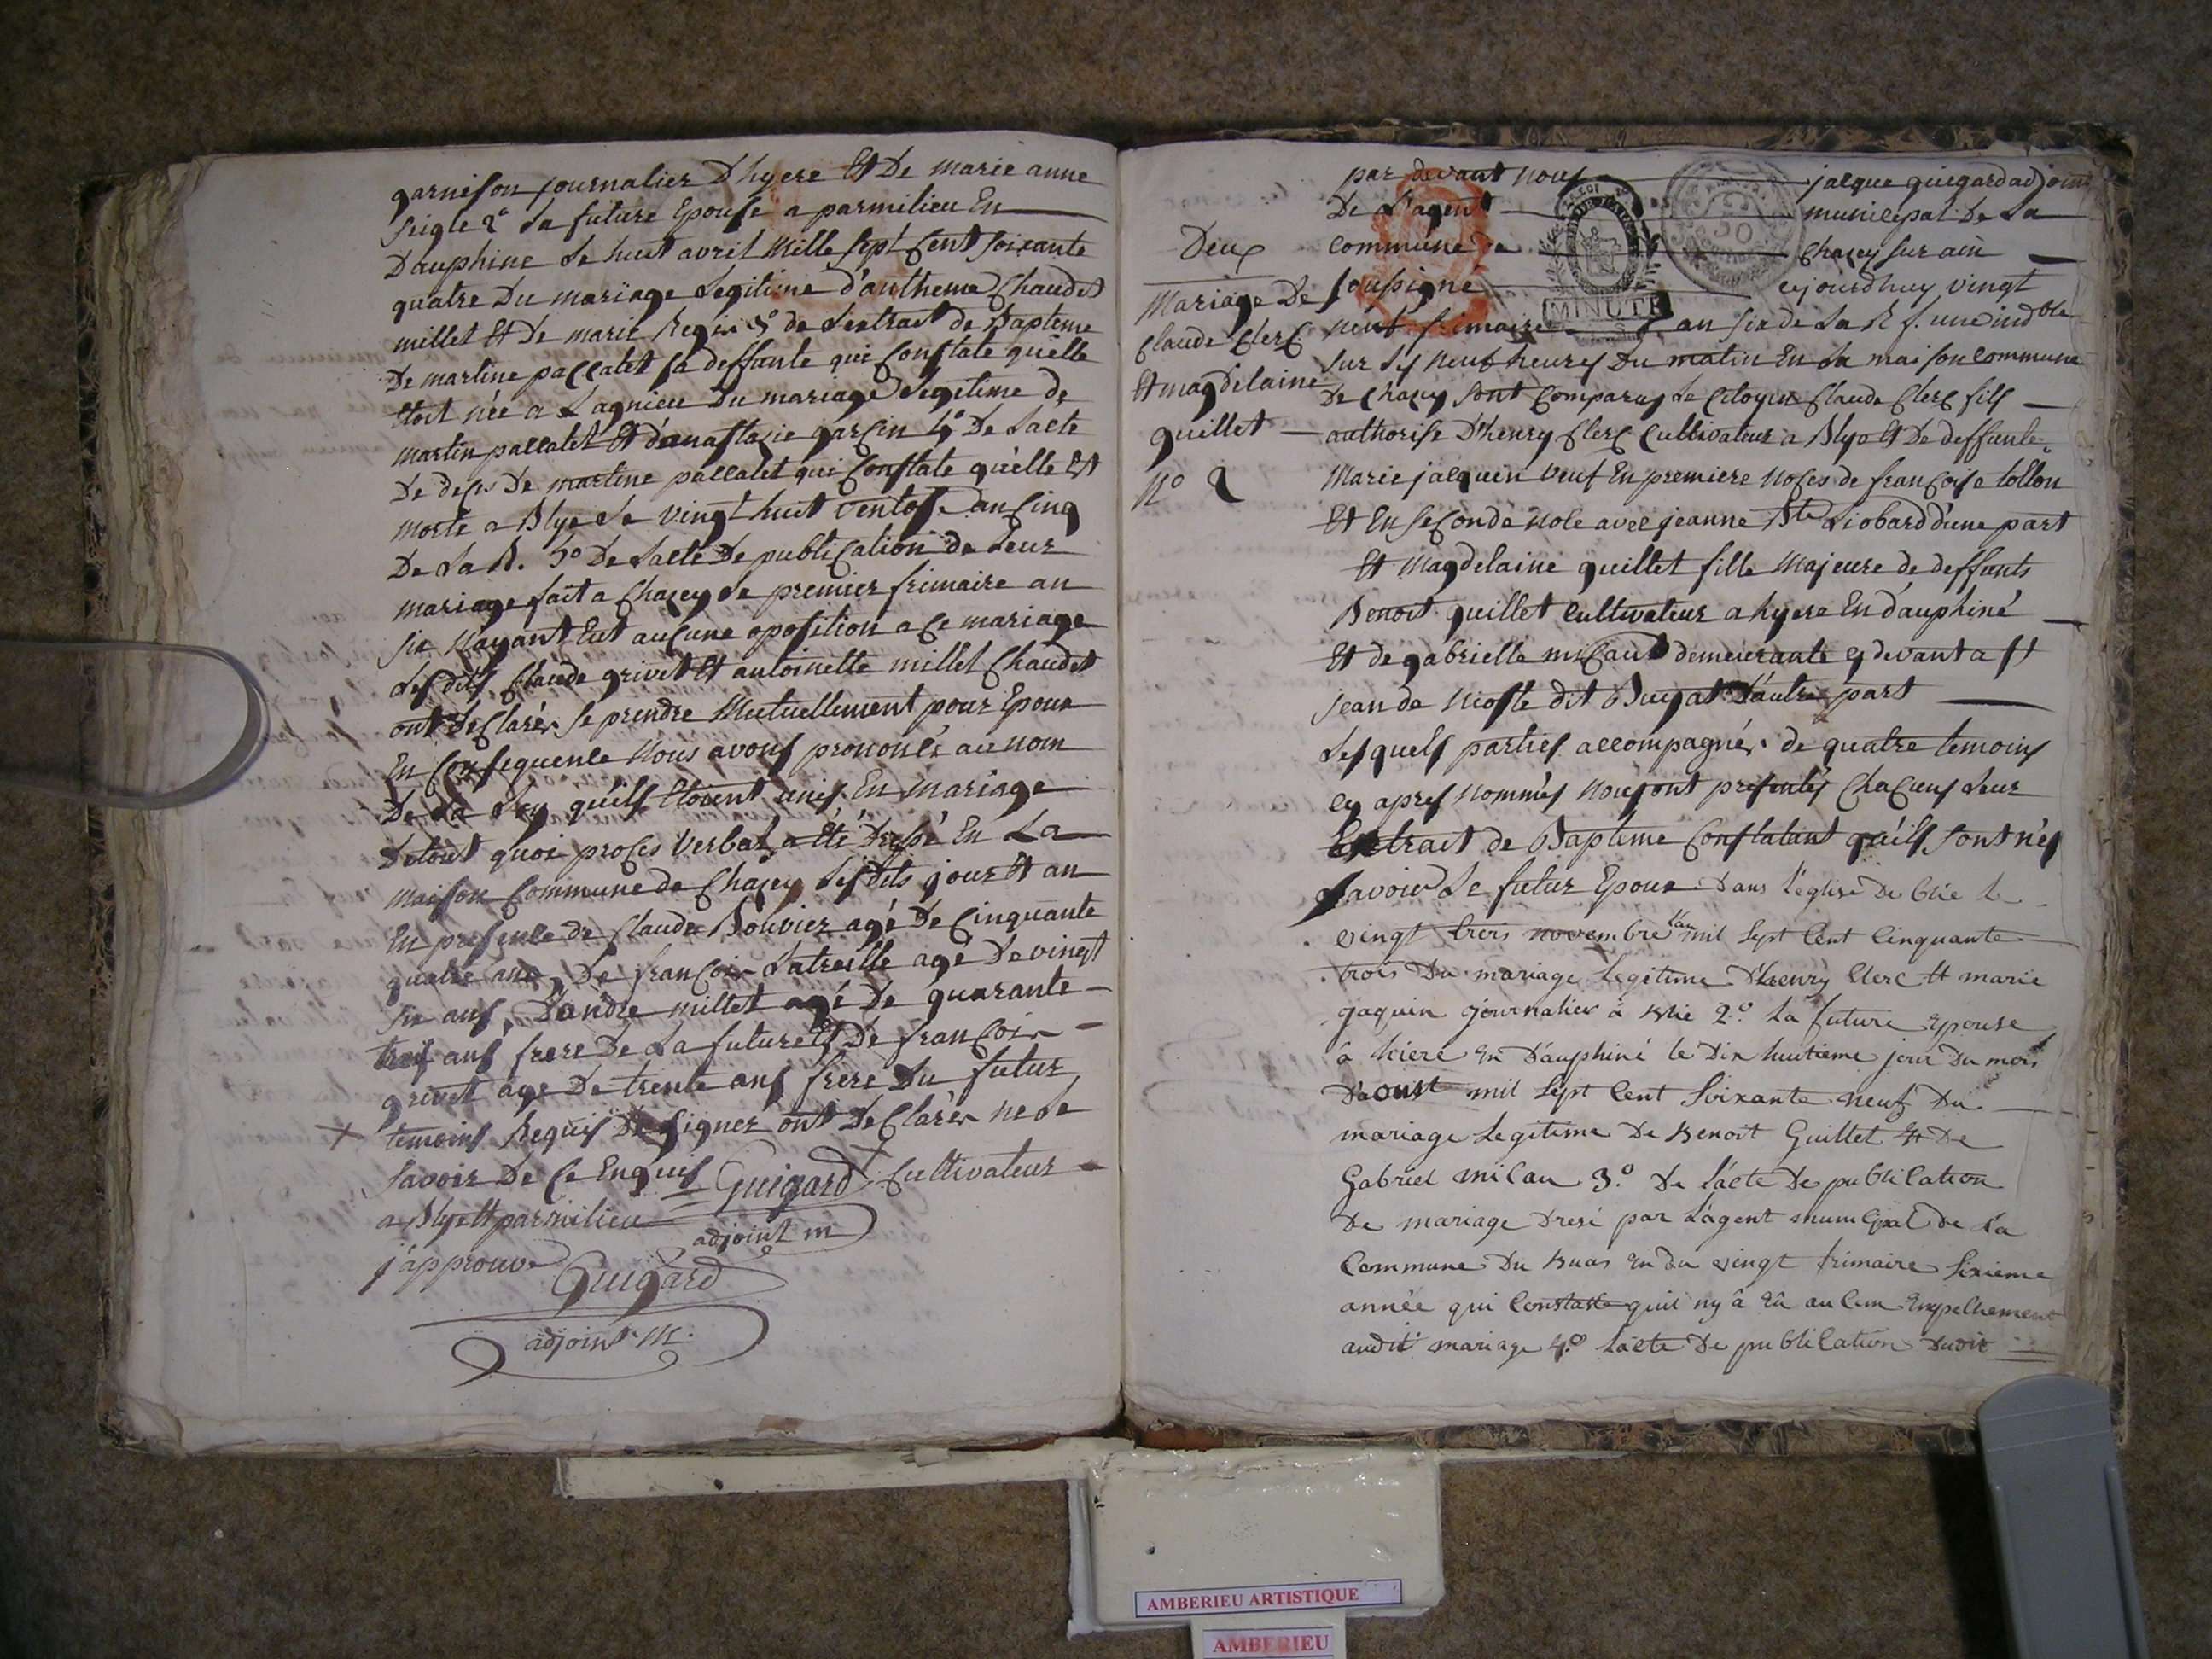 garnison journalier D'hyere Et De marie anne
seigle 2° La future Epouse a parmilieu En
Dauphine Le huit avril Mille sept Cent soixante
quatre Du mariage Legitime d'antheme Chaudet
millet Et De marie 3° de Lextrait de Bapteme
De martine paccalet sa deffunte qui Constate quelle
Etoit née a Lagnieu Du mariage Legitime de
martin paccalet Et d'anastazie garcin 4° De Lacte
De deces De martine paccalet qui Constate qu'elle Est
morte a Blye Le vingt huit ventose an Cinq
De La R. 5° De Lacte De publication de Leur
mariage fait a Chazey Le premier frimaire an
six Nayant Eut aucune oposition a Ce mariage
Lesdits Claude grivet Et antoinette millet Chaudet
ont DeClarés Se prendre Mutuellement pour Epoux
En Consequence Nous avons prononcés au nom
De La Loy qu'ils Etoient unis En Mariage
De tout quoi proces Verbal a Eté Dressé En La
Maison Commune de Chazey Lesdits jour Et an
En presence de Claude Bouvier agé De Cinquante
quatre ans, De françois Latreille agé De vingt
six ans, D'andre millet agé De quarante
trois ans frere De La future Et De françois
grivet agé De trente ans frere Du futur
+ temoins Requis De signer ont DeClarés ne Le
savoir De Ce Enquis Guigard Cultivateur
a Blye Et parmilieu
adjoint m
j'approuve Guigard
adjoint m.
par devant nous jacque guigard adjoint
De L'agent municipal De La
Deux
commune de Chazey sur ain
soussigné cejourdhuy vingt
MINUTE
Mariage De
Claude Clerc
Et magdelaine
guillet
N° 2
neuf frimaire an six de La R f. une ind ble
sur Les neuf heures Du matin En La maison Commune
De Chazey sont Comparus Le Citoyen Claude Clerc fils
authorise D'henry Clerc Cultivateur a Blye Et De deffunte
Marie jacquin veuf En premiere Noces de françoise tollon
Et En seConde noce avec jeanne Bte Liobard d'une part
Et Magdelaine guillet fille Majeure de deffunts
Benoit guillet Cultivateur a hyere En dauphiné
Et de gabrielle miCaud demeurante cy devant a st
jean de Nioste dit Bugat D'autre part
Lesquels parties accompagnés de quatre temoins
cy apres nommés Nous ont presentés ChaCuns Leur
Extrait de Bapteme Constatant qu'ils sont nés
Savoir Le futur Epoux Dans l'église De blie le
vingt trois novembre L'an mil sept cent cinquante
trois Du mariage Legitime D'henry Clerc Et marie
jaquin journalier à Blie 2.° La future Epouse
à hiere En Dauphiné le Dix huitieme jour Du mois
D'aoust mil sept cent soixante neuf Du
mariage Legitime De Benoit Guillet Et De
Gabriel milan 3.° De L'acte De publication
De mariage Dresé par L'agent municipal De La
Commune Du Buas En du vingt frimaire sixieme
année qui Constate quil ny à Eû aucun Empechement
audit mariage 4.° L'acte De publication Dudit
AMBERIEU ARTISTIQUE
AMBERIEU